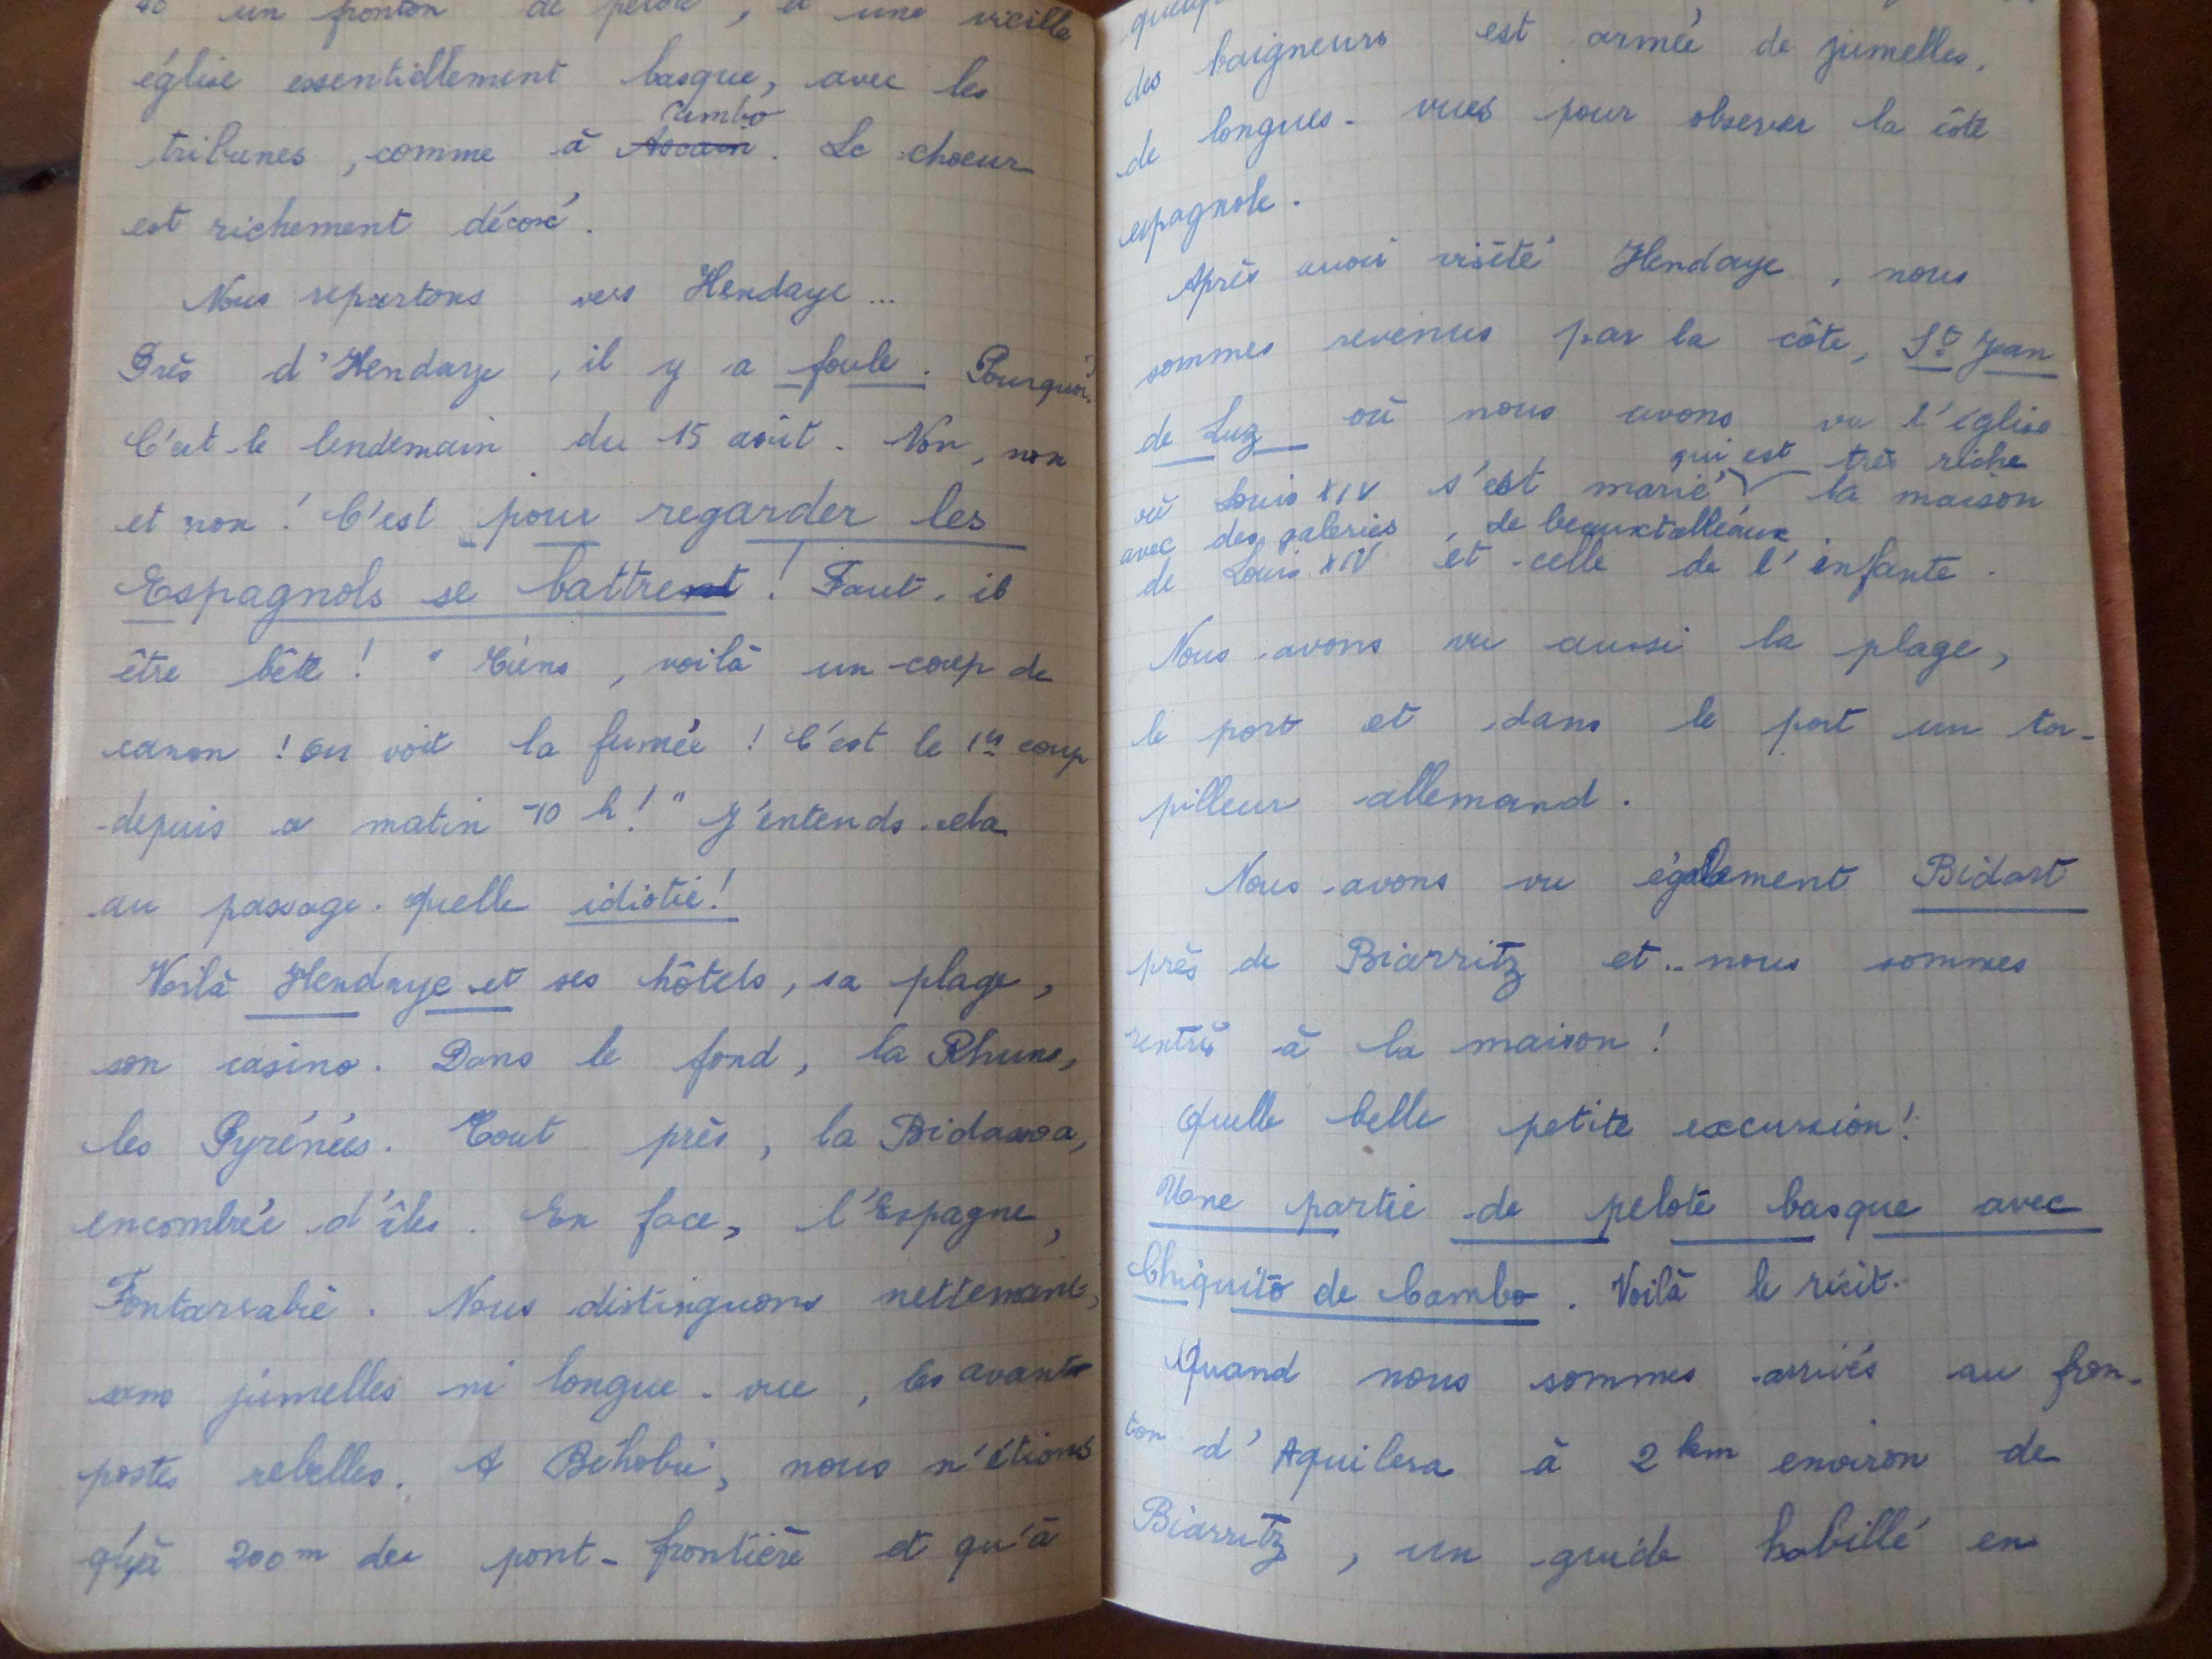 un fronton de pelote, et une vieille
église essentiellement basque, avec les
Cambo
tribunes, comme à Ascain. Le choeur
est richement décoré.
Nous repartons vers Hendaye...
Près d'Hendaye, il y a foule. Pourquoi.
C'est le lendemain du 15 août. Non, non
et non! C'est pour regarder les
Espagnols se battrent! Faut-il
être bête! "Tiens, voilà un coup de
canon! On voit la fumée! C'est le 1er coup
depuis ce matin 10 h!" J'entends cela
au passage. Quelle idiotie!
Voilà Hendaye et ses hôtels, sa plage,
son casino. Dans le fond, la Rhune,
les Pyrénées. Tout près, la Bidassoa,
encombrée d'îles. En face, l'Espagne,
Fontarrabie. Nous distinguons nettement,
sans jumelles ni longue-vue, les avants
postes rebelles. A Béhobie, nous n'étions
qu'à 200m du pont-frontière et qu'à
des baigneurs est armée de jumelles,
de longues-vues pour observer la côte
espagnole.
Après avoir visité Hendaye, nous
sommes revenus par la côte, St Jean
de Luz où nous avons vu l'église
qui est très riche
où Louis XIV s'est marié la maison
avec des galeries, de beaux tableaux
de Louis XIV et celle de l'enfante.
Nous avons vu aussi la plage,
le port et dans le port un tor-
pilleur allemand.
Nous avons vu également Bidart
près de Biarritz et.. nous sommes
rentrés à la maison!
Quelle belle petite excursion!
Une partie de pelote basque avec
Chiquito de Cambo. Voilà le récit.
Quand nous sommes arrivés au fron-
ton d'Aquilera à 2 km environ de
Biarritz, un guide habillé en